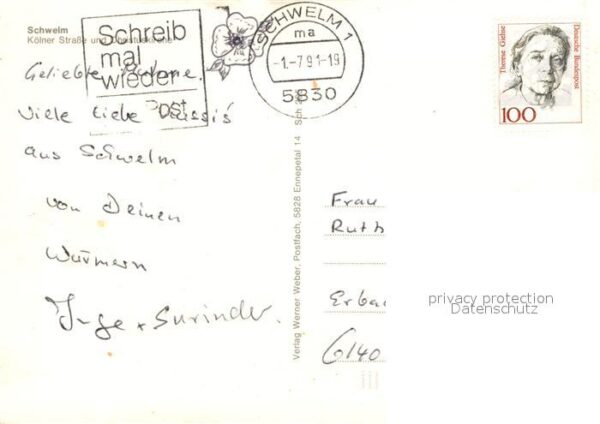 Schwelm
Kölner Straße und Christuskirche
Schreib
mal
wieder
Post
SCHWELM 1
ma
-1.-7.91-19
5830
Therese Giehse
Deutsche Bundespost
100
Geliebte
Viele liebe Bussis
aus Schwelm
von Deinen
Würmern
Inge + Surinder.
Verlag Werner Weber, Postfach, 5828 Ennepetal 14 Sch
Frau
Ruth
Erbac
6140
privacy protection
Datenschutz